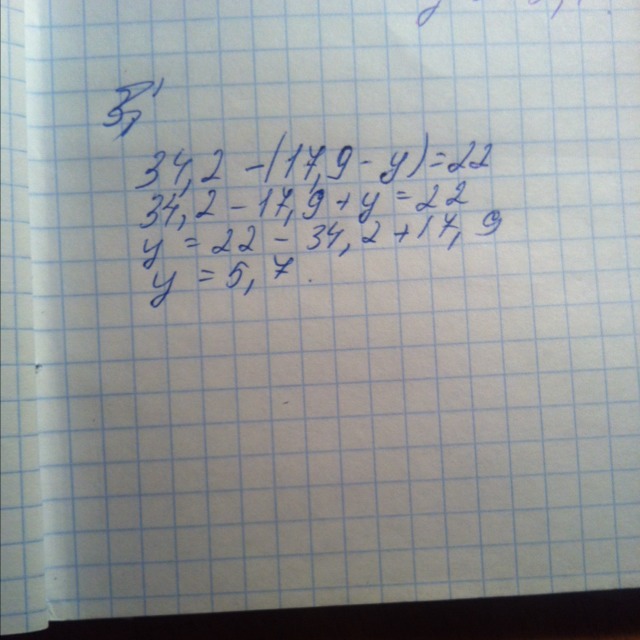 3)
34,2 - (17,9 - y) = 22
34,2 - 17,9 + y = 22
y = 22 - 34,2 + 17,9
y = 5,7